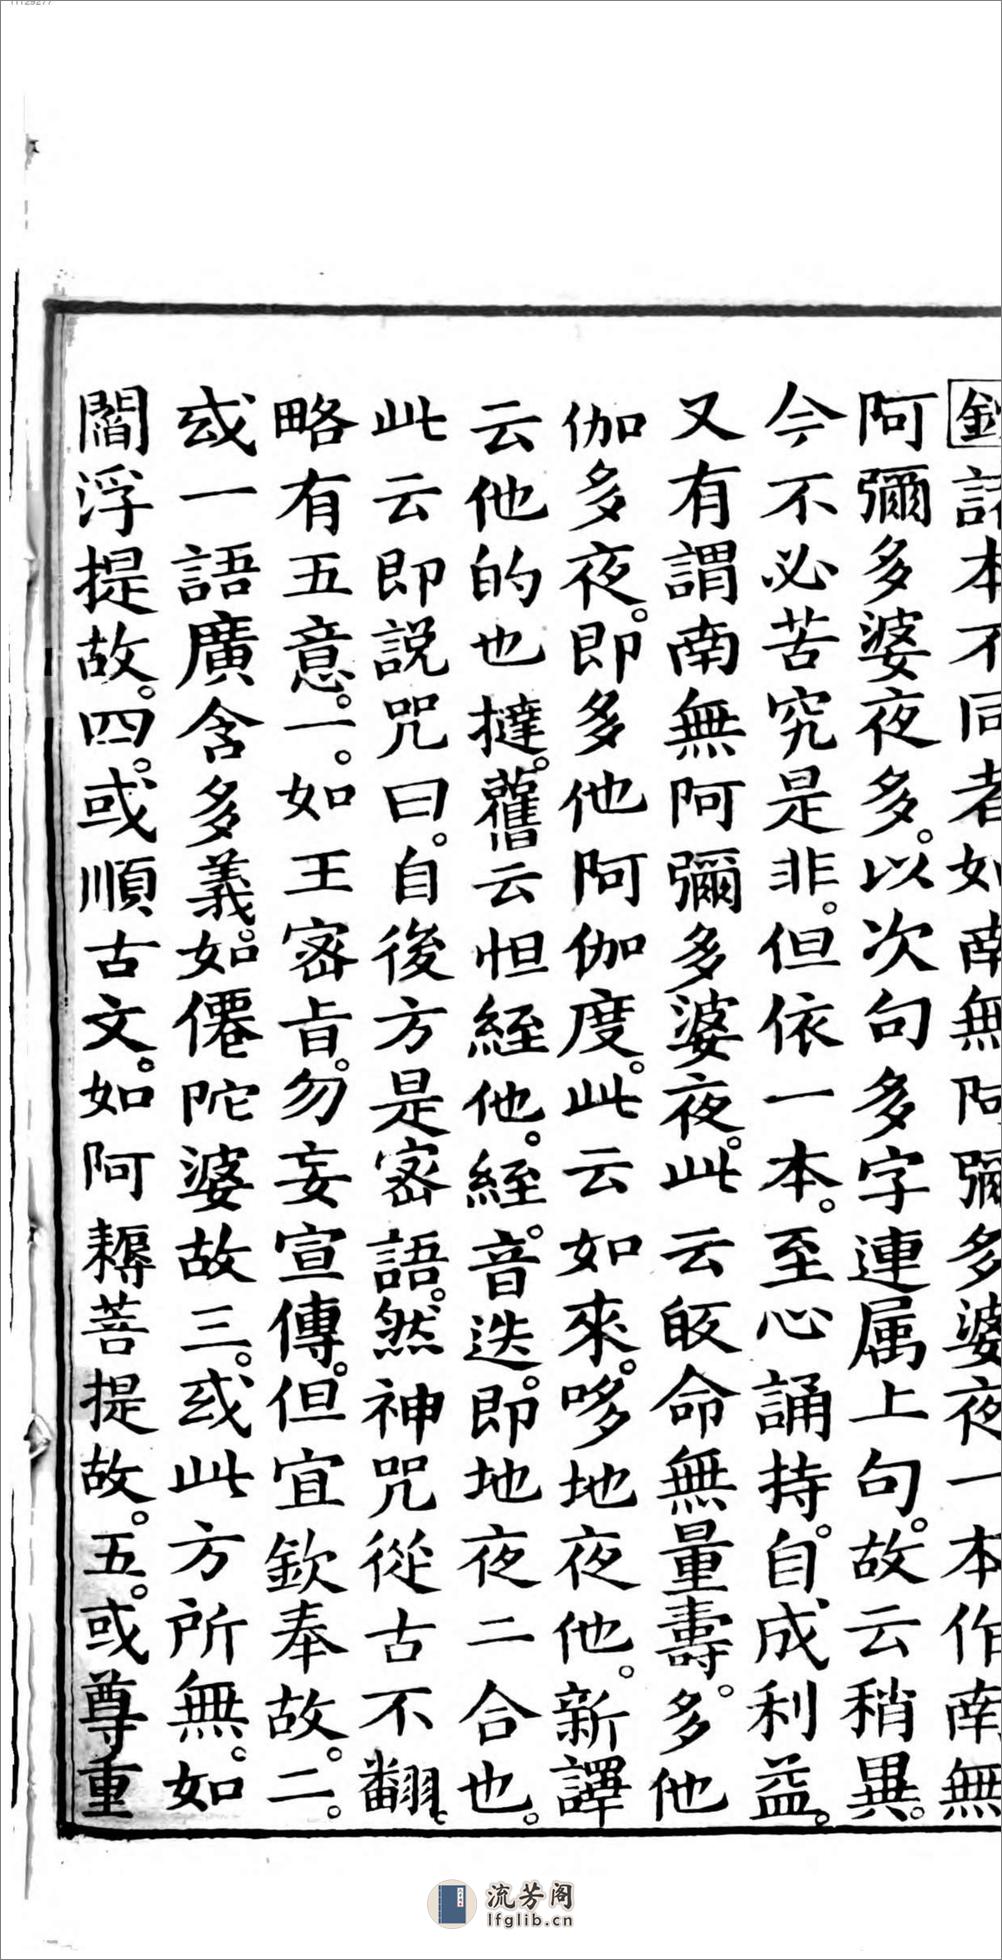 諸本不同者如南無阿彌多婆夜一本作南無
阿彌多婆夜多。以次句多字連属上句。故云稍異。
今不必苦究是非。但依一本。至心誦持。自成利益。
又有謂南無阿彌多婆夜。此云皈命無量壽。多他
伽多夜。即多他阿伽度。此云如來。哆地夜他。新譯
云他的也撻。舊云怛絰他。絰。音迭。即地夜二合也。
此云即説咒曰。自後方是密語。然神咒從古不翻。
略有五意。一。如王密旨。勿妄宣傳。但宜欽奉故。二。
或一語廣含多義。如僊陀婆故三。或此方所無。如
閻浮提故。四。或順古文。如阿耨菩提故。五。或尊重
流芳阁
lfglib.cn